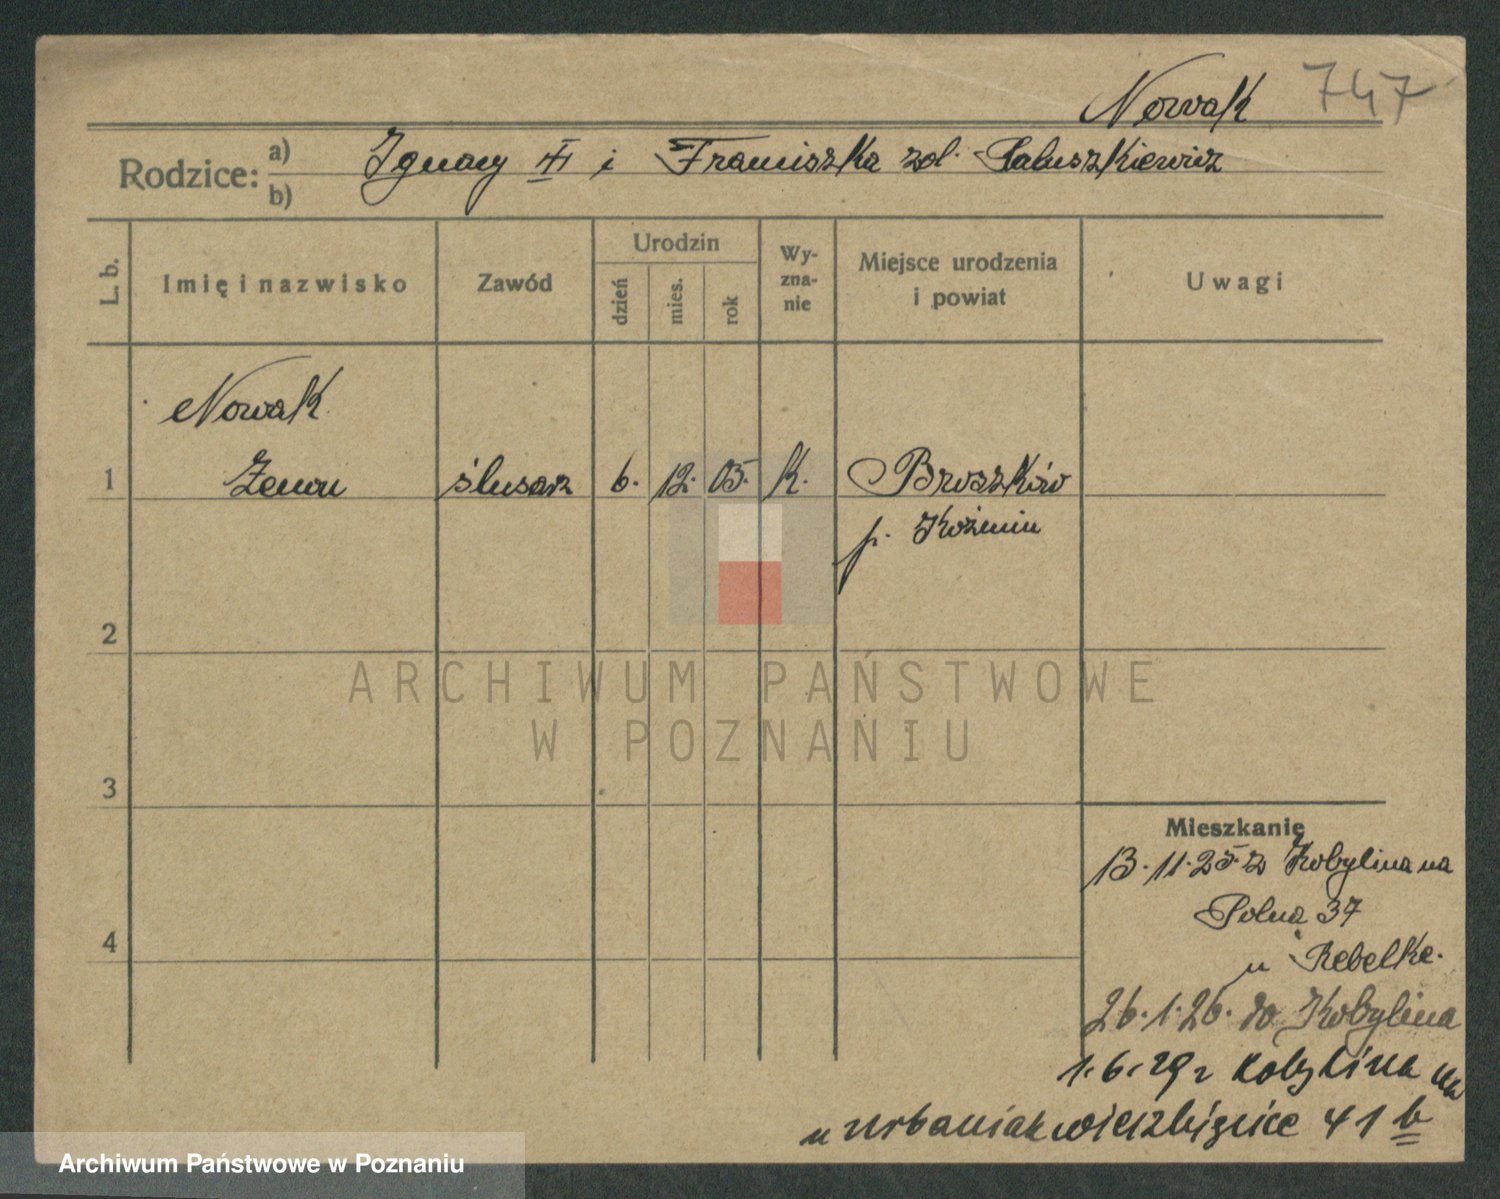 Nowak 747
Rodzice: a) b) Ignacy III i Franciszka zd. Paluszkiewicz
L. b.
Imię i nazwisko
Zawód
Urodzin
dzień
mies.
rok
Wy-
zna-
nie
Miejsce urodzenia
i powiat
Uwagi
Nowak
1 Zenon ślusarz 6. 12. 05. K. Broszków
p. Koźmin
2
3
4
Mieszkanie
13.11.25 z Kobylina na
Polna 37
u Rebelke.
26.1.26. do Kobylina
1.6.29 z Kobylina na
u Urbaniak wierzbięcice 41 b
ARCHIWUM PAŃSTWOWE
W POZNANIU
Archiwum Państwowe w Poznaniu